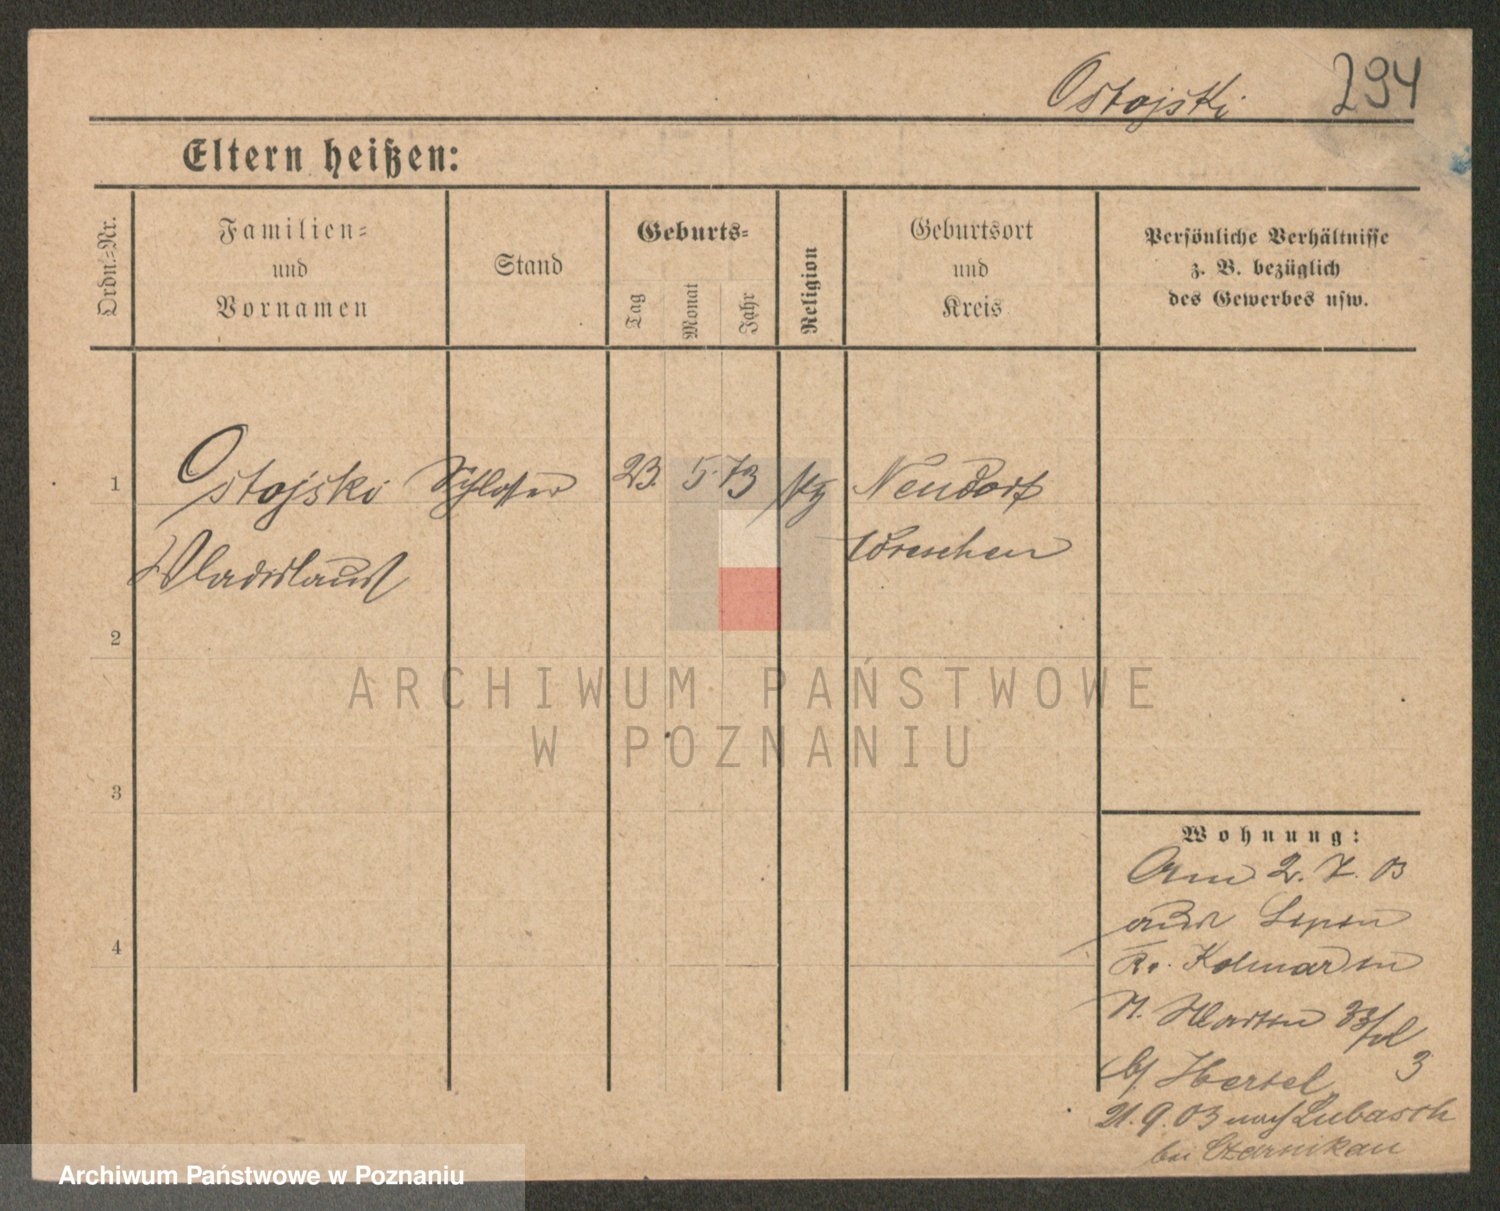 Ostojski 294
Eltern heißen:
Ordn.-Nr.
Familien-
und
Vornamen
Stand
Geburts-
Tag
Monat
Jahr
Religion
Geburtsort
und
Kreis
Persönliche Verhältnisse
z. B. bezüglich
des Gewerbes usw.
1 Ostojski Schlosser 23. 5. 73 Neudorf
Wladislaus Wreschen
2
3
4
Wohnung:
Am 2. 7. 03
aus
Kr. Kolmar in
33/
3
b/ Hertel
21. 9. 03 nach Lubasch
bei Czarnikau
ARCHIWUM PAŃSTWOWE
W POZNANIU
Archiwum Państwowe w Poznaniu